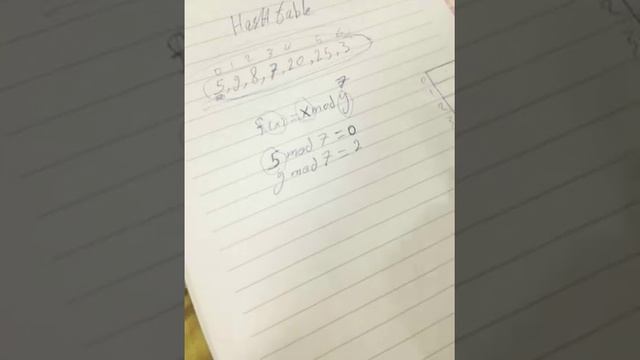 Hash table
0 1 2 3 4 5 6
(5, 9, 8, 7, 20, 25, 3)
f(x) = x mod y
7
5 mod 7 = 0
9 mod 7 = 2
0
1
2
3